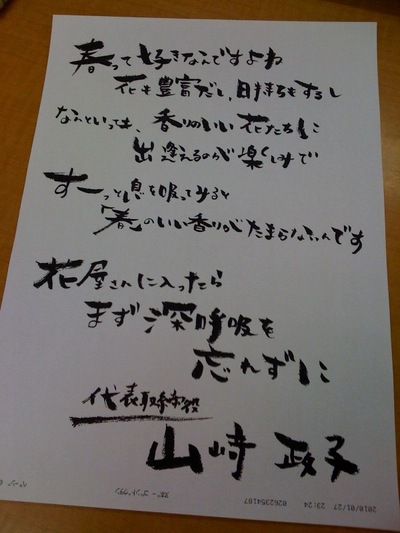 春って好きなんですよね
花も豊富だし、日持ちもするし
なんといっても、香りのいい花たちに
出逢えるのが楽しみで
すーっと息を吸ってみると
「春」のいい香りがたまらないんです
花屋さんに入ったら
まず深呼吸を
忘れずに
代表取締役
山崎 政子
2010/01/27 23:24 0262354107